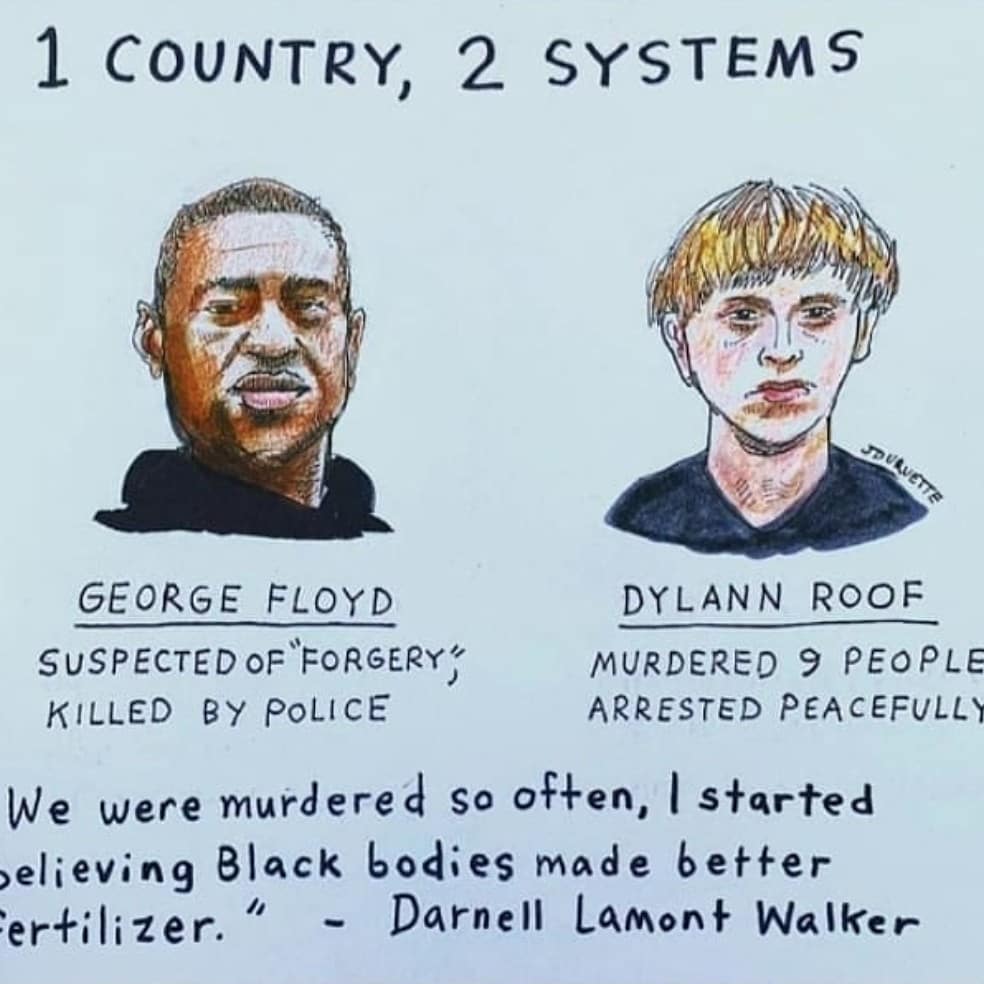 1 COUNTRY, 2 SYSTEMS
JDURUETTE
GEORGE FLOYD
SUSPECTED OF "FORGERY",
KILLED BY POLICE
DYLANN ROOF
MURDERED 9 PEOPLE
ARRESTED PEACEFULLY
We were murdered so often, I started
believing Black bodies made better
fertilizer." - Darnell Lamont Walker